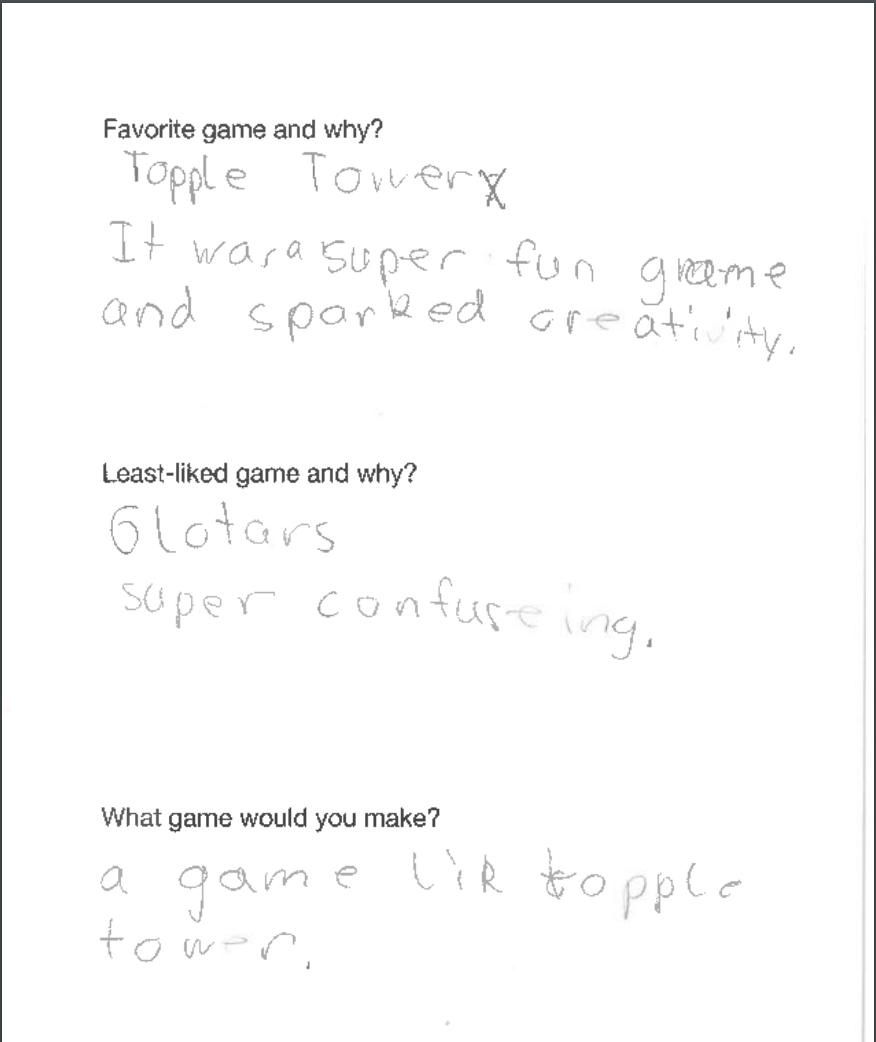 Favorite game and why?
Topple Tower
It was a super fun game
and sparked creativity.
Least-liked game and why?
Glotars
super confuseing.
What game would you make?
a game lik topple
tower.